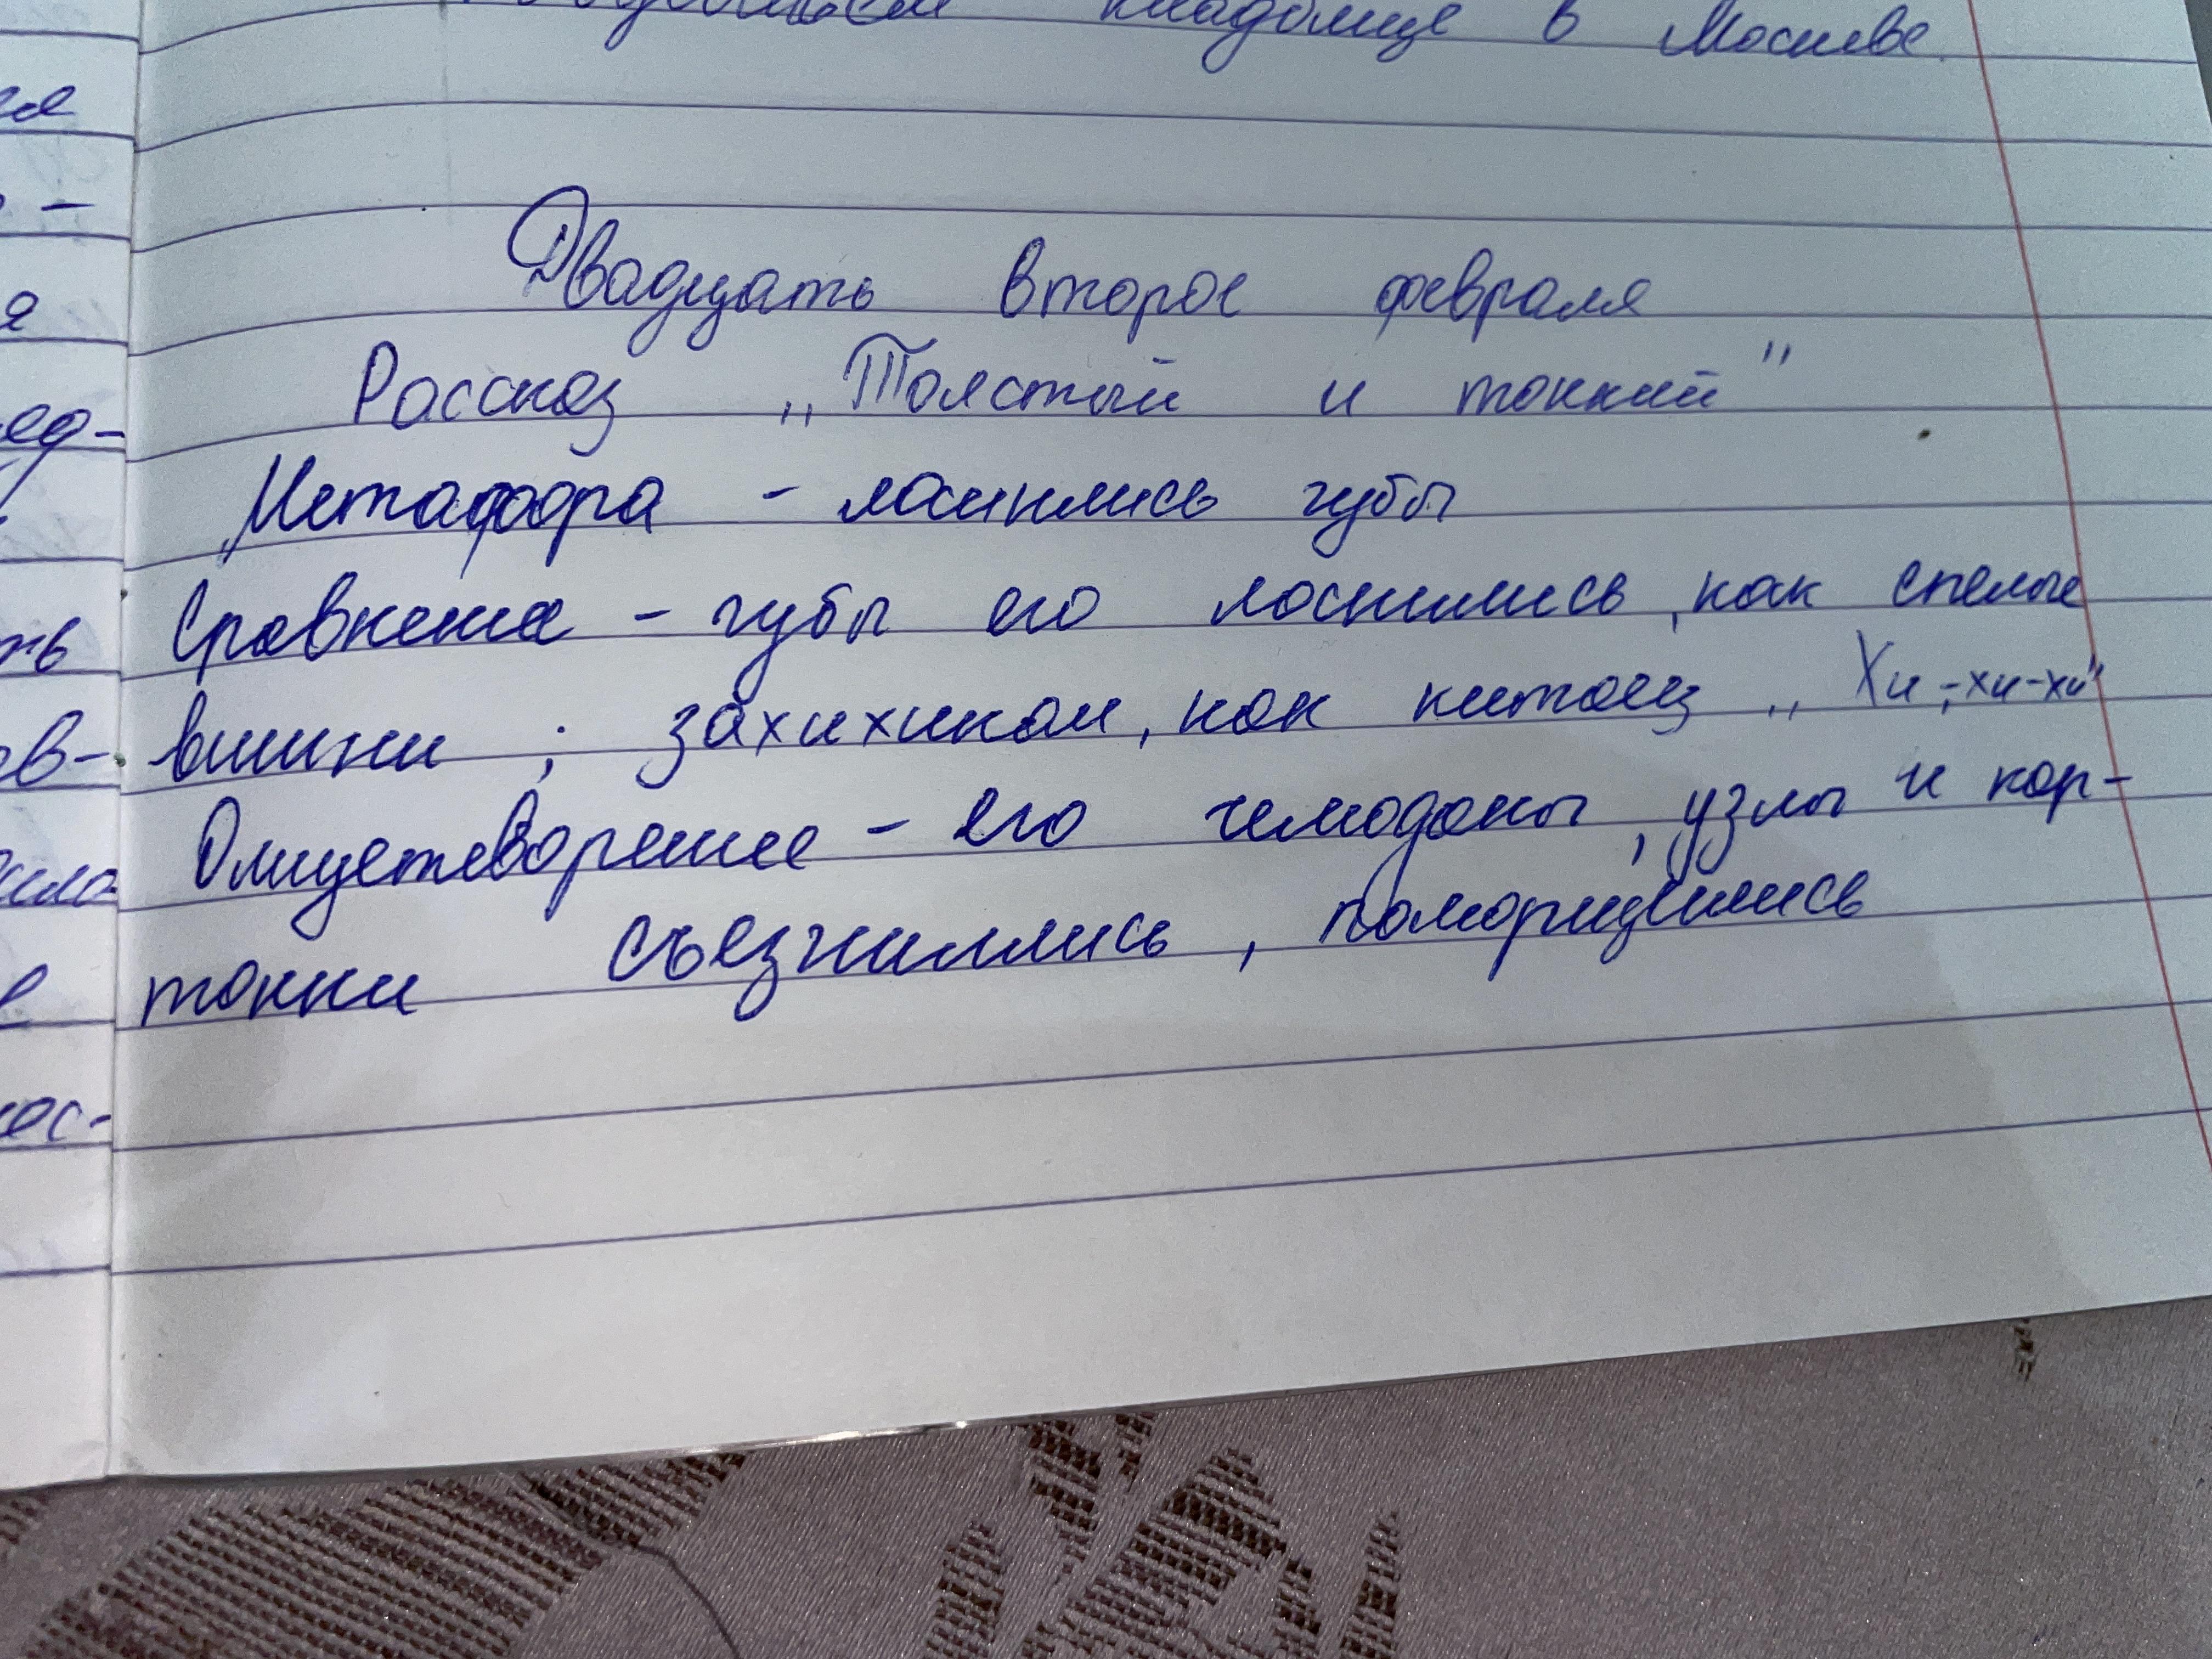 кладбище в Москве.
Двадцать второе февраля
Рассказ „Толстый и тонкий"
Метафора - лоснились губы
Сравнение - губы его лоснились, как спелые
вишни ; захихикал, как китаец „Хи-хи-хи"
Олицетворение - его чемоданы, узлы и кар-
тонки съезжились, поморщились